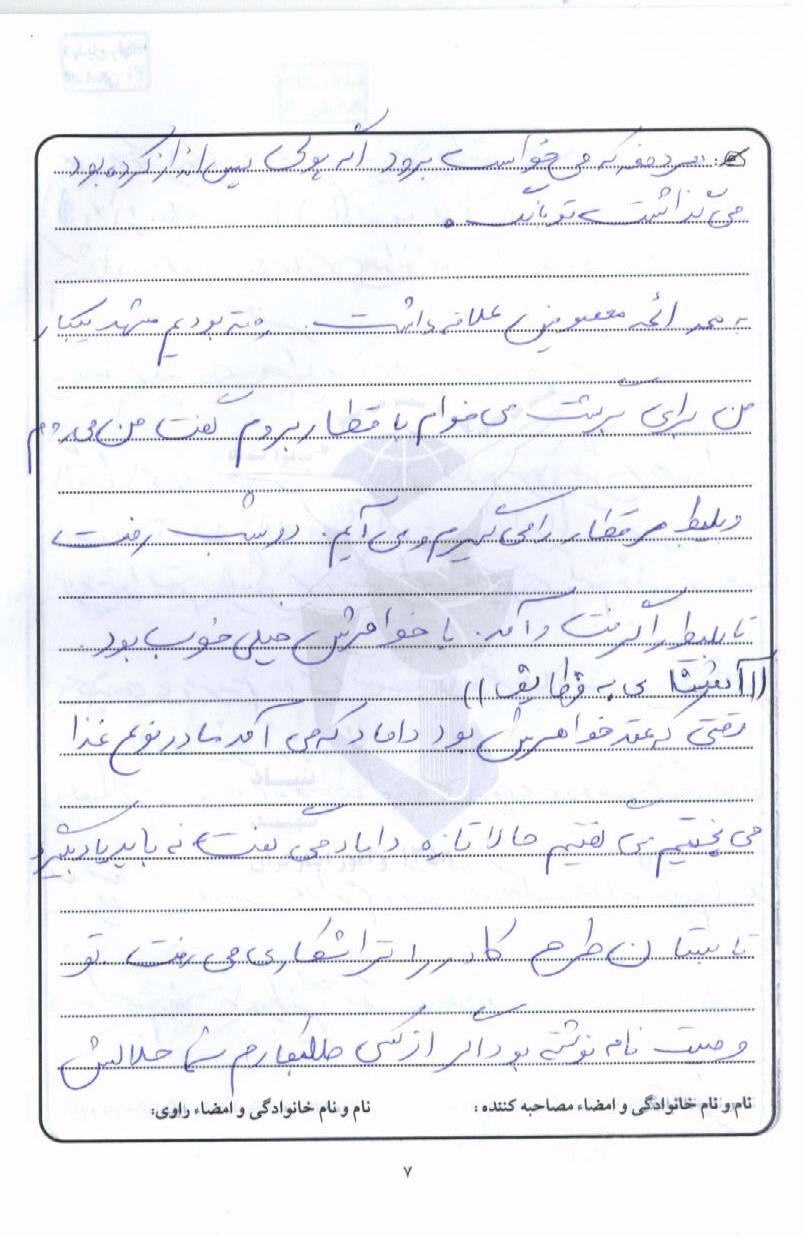 هر دفعه که می خواست برود اگه پولی پس انداز کرده بود
می گذاشت تو بانک.
به همه ائمه معصومین علاقه داشت. رفته بودیم مشهد یکبار
من برای برگشت می خوام با قطار بروم گفت من می روم
و بلیط قطار را می گیرم و می آیم. در شب رفت
تا بلیط را گرفت و آمد. با خواهرش خیلی خوب بود.
((آشنایی به وظایف))
وقتی که عقد خواهرش بود داماد که می آمد ما در نوع غذا
می پختیم می گفتیم حالا تازه داماد می گفت نه باید یاد بگیرد
تابستان طرح کاد را تراشکاری می رفت تو
وصیت نامه نوشته بود اگر از کسی طلبکارم شما حلالش
نام و نام خانوادگی و امضاء مصاحبه کننده :
نام و نام خانوادگی و امضاء راوی:
۷